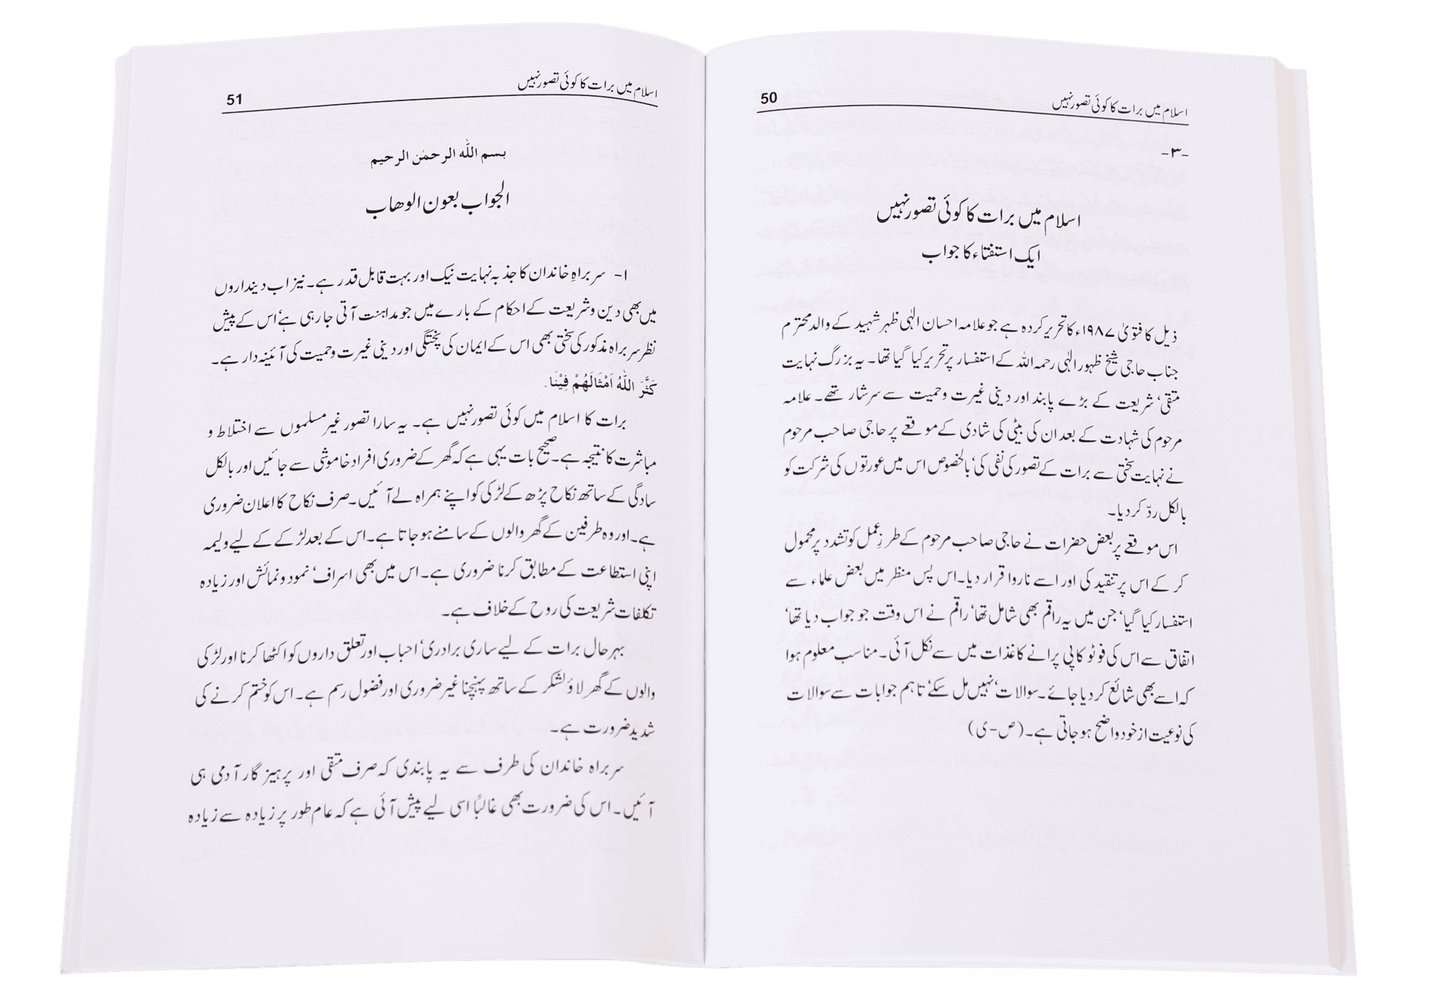 اسلام میں برات کا کوئی تصور نہیں 50
-۳-
اسلام میں برات کا کوئی تصور نہیں
ایک استفتاء کا جواب
ذیل کا فتویٰ ۱۹۸۷ء کا تحریر کردہ ہے جو علامہ احسان الٰہی ظہیر شہید کے والد محترم
جناب حاجی شیخ ظہور الٰہی رحمہ اللہ کے استفسار پر تحریر کیا گیا تھا۔ یہ بزرگ نہایت
متقی، شریعت کے بڑے پابند اور دینی غیرت و حمیت سے سرشار تھے۔ علامہ
مرحوم کی شہادت کے بعد ان کی بیٹی کی شادی کے موقعے پر حاجی صاحب مرحوم
نے نہایت سختی سے برات کے تصور کی نفی کی، بالخصوص اس میں عورتوں کی شرکت کو
بالکل ردّ کر دیا۔
اس موقعے پر بعض حضرات نے حاجی صاحب مرحوم کے طرزِ عمل کو تشدد پر محمول
کر کے اس پر تنقید کی اور اسے ناروا قرار دیا۔ اس پس منظر میں بعض علماء سے
استفسار کیا گیا، جن میں یہ راقم بھی شامل تھا، راقم نے اس وقت جو جواب دیا تھا،
اتفاق سے اس کی فوٹو کاپی پرانے کاغذات میں سے نکل آئی۔ مناسب معلوم ہوا
کہ اسے بھی شائع کر دیا جائے۔ سوالات، نہیں مل سکے، تاہم جوابات سے سوالات
کی نوعیت از خود واضح ہو جاتی ہے۔ (ص-ی)
اسلام میں برات کا کوئی تصور نہیں 51
بسم الله الرحمن الرحيم
الجواب بعون الوهاب
۱- سربراہِ خاندان کا جذبہ نہایت نیک اور بہت قابل قدر ہے۔ نیز اب دینداروں
میں بھی دین و شریعت کے احکام کے بارے میں جو مداہنت آتی جا رہی ہے، اس کے پیش
نظر سربراہ مذکور کی سختی بھی اس کے ایمان کی پختگی اور دینی غیرت و حمیت کی آئینہ دار ہے۔
كَثَّرَ اللّٰهُ اَمْثَالَهُمْ فِيْنَا.
برات کا اسلام میں کوئی تصور نہیں ہے۔ یہ سارا تصور غیر مسلموں سے اختلاط و
مباشرت کا نتیجہ ہے۔ صحیح بات یہی ہے کہ گھر کے ضروری افراد خاموشی سے جائیں اور بالکل
سادگی کے ساتھ نکاح پڑھ کے لڑکی کو اپنے ہمراہ لے آئیں۔ صرف نکاح کا اعلان ضروری
ہے۔ اور وہ طرفین کے گھر والوں کے سامنے ہو جاتا ہے۔ اس کے بعد لڑکے کے لیے ولیمہ
اپنی استطاعت کے مطابق کرنا ضروری ہے۔ اس میں بھی اسراف، نمود و نمائش اور زیادہ
تکلفات شریعت کی روح کے خلاف ہے۔
بہرحال برات کے لیے ساری برادری، احباب اور تعلق داروں کو اکٹھا کرنا اور لڑکی
والوں کے گھر لاؤ لشکر کے ساتھ پہنچنا غیر ضروری اور فضول رسم ہے۔ اس کو ختم کرنے کی
شدید ضرورت ہے۔
سربراہ خاندان کی طرف سے یہ پابندی کہ صرف متقی اور پرہیز گار آدمی ہی
آئیں۔ اس کی ضرورت بھی غالباً اسی لیے پیش آئی ہے کہ عام طور پر زیادہ سے زیادہ